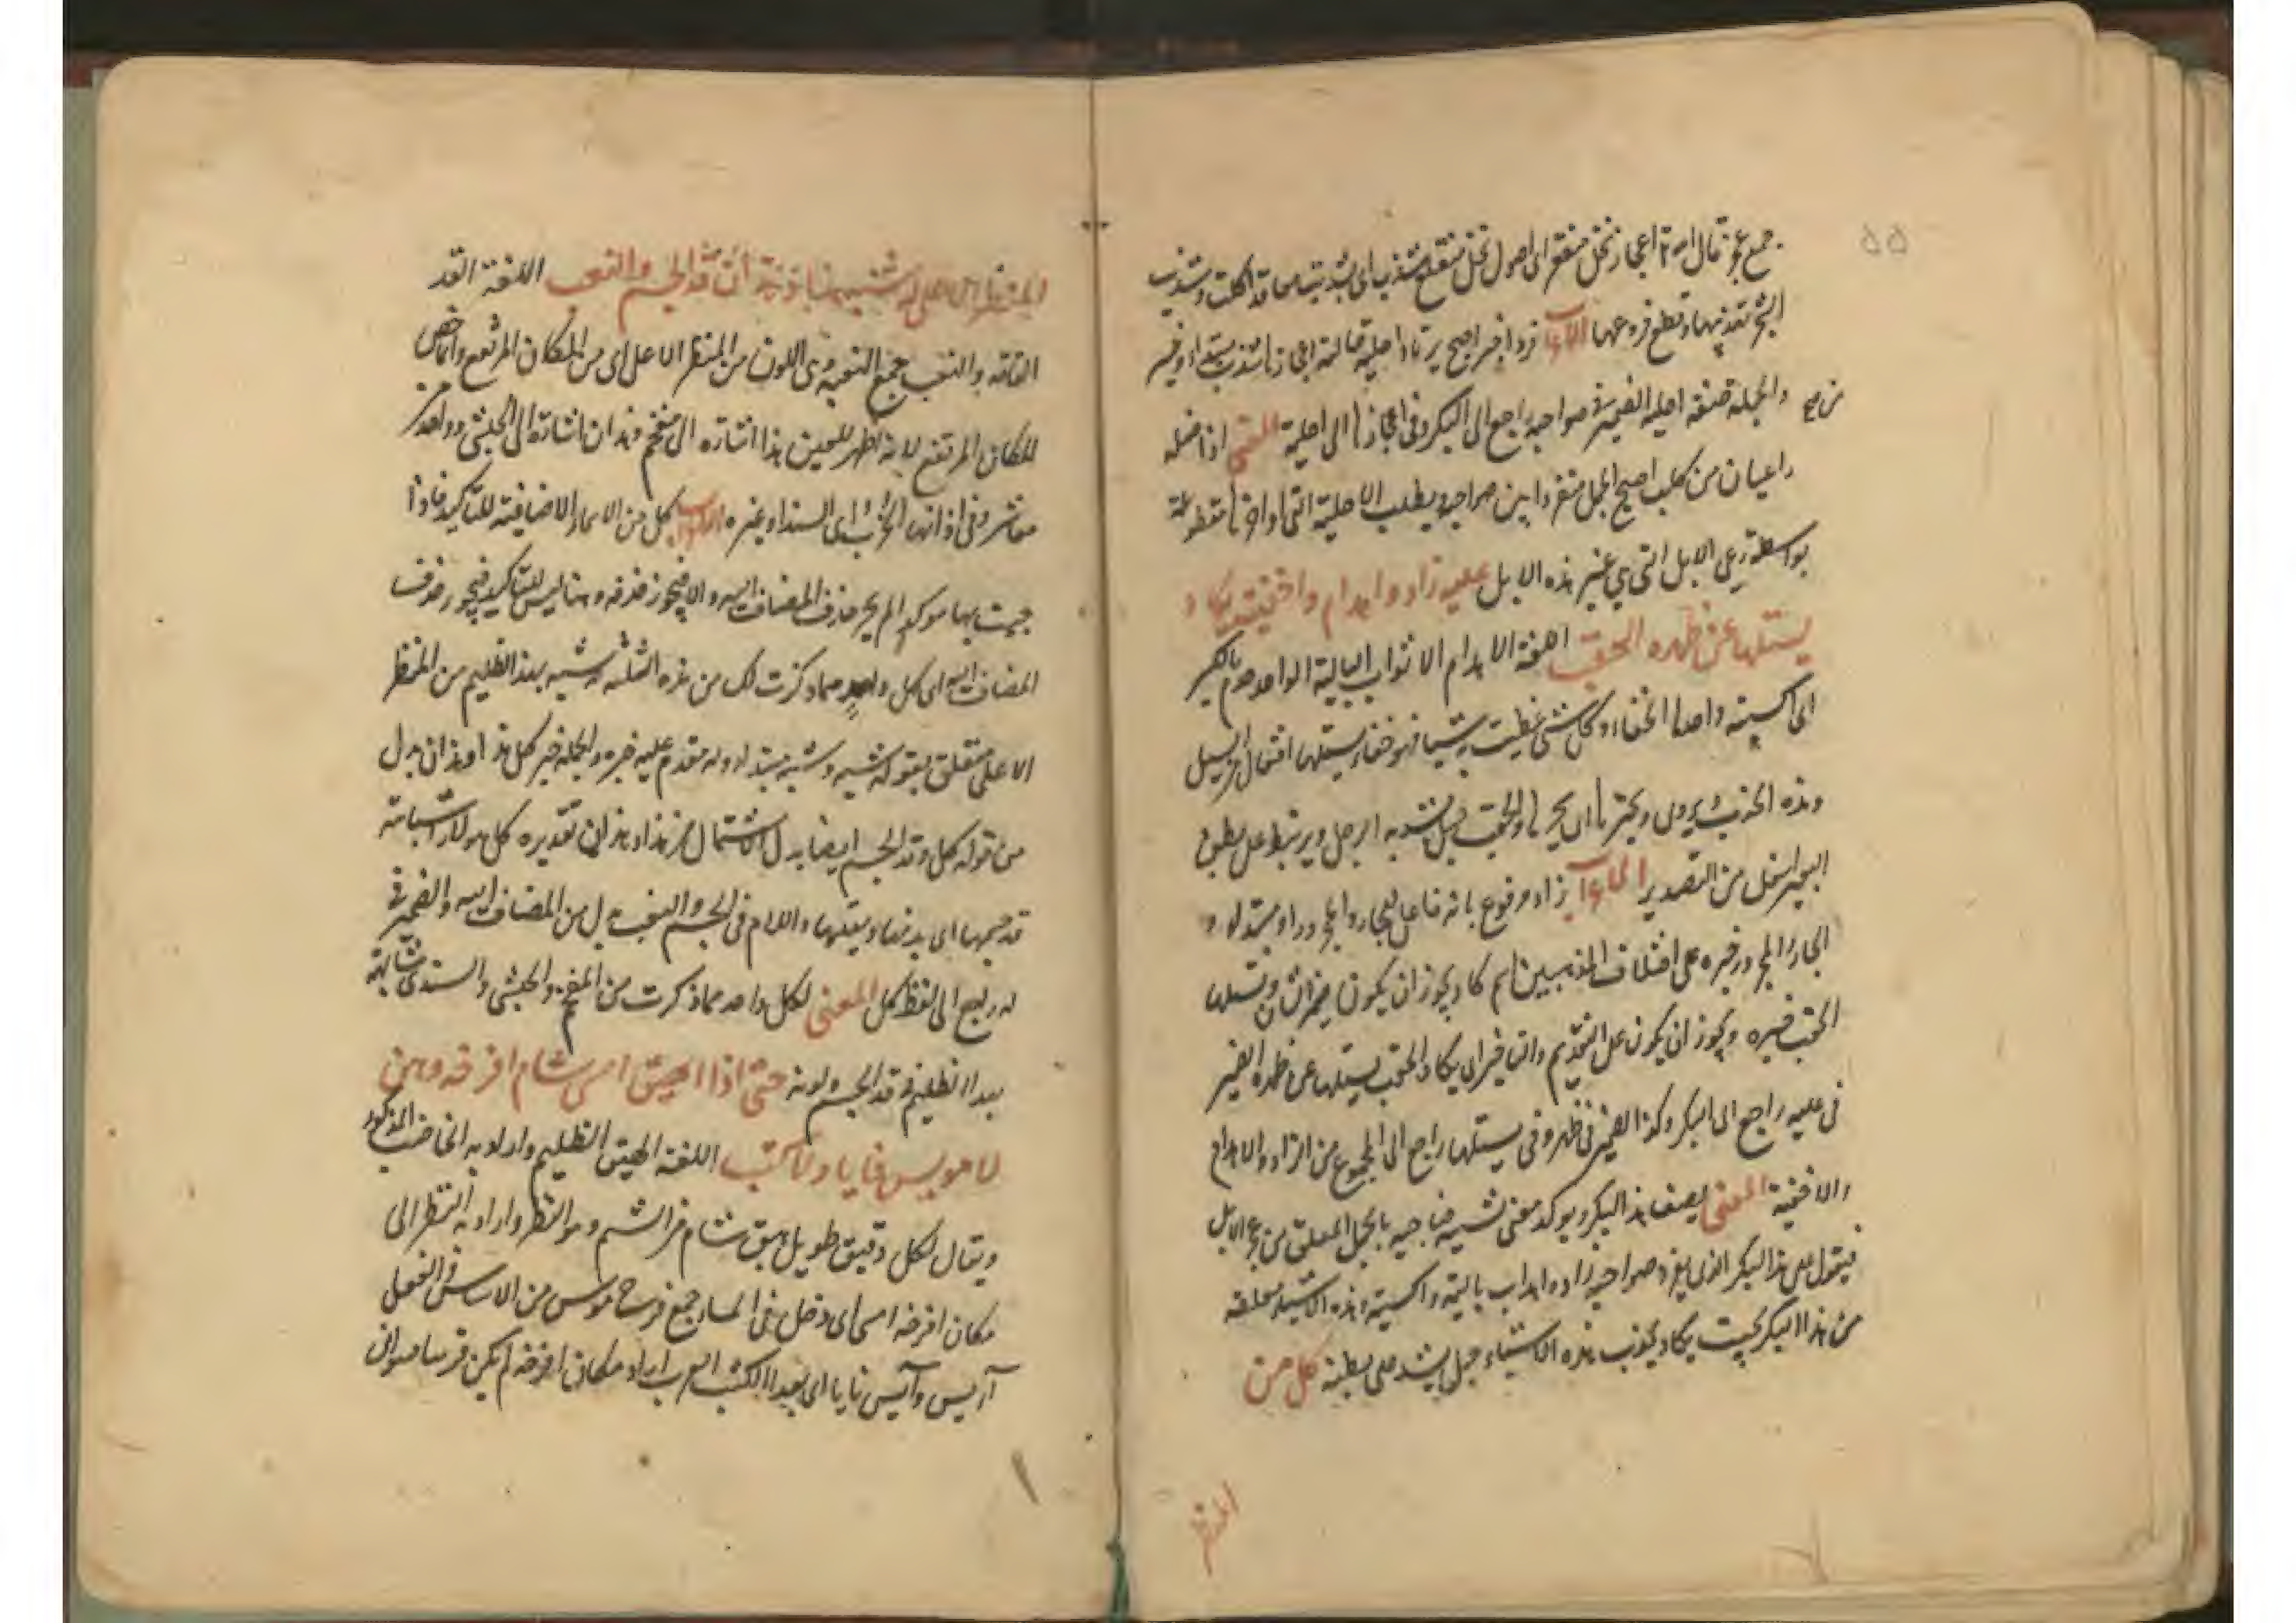 جمع عجز قال الله اعجاز نخل منقعر اى اصول نخل منقلع شذب اى شذبت مما قد اكلت وتشذيب
الشجر تهذيبها وقطع فروعها الاعراب فردا خبر اصبح يرتاد احلية حال اعجازها شذب مبتداء وخبر
والجملة صفة احلية الضمير فى صواحبه راجع الى البكر وفى اعجازها الى احلية المعنى اذا اضله
راعيان من كلب اصبح الجمل منفردا بين صواحبه يطلب الاحلية التى اواخرها مقطوعة
بواسطة رعى الابل التى هى غير هذه الابل عليه زاد واهدام واخفية يكاد
يستلها عن ظهره الحقب اللغة الاهدام الاثواب البالية الواحد هدم بالكسر
اى اكسية واحدها الخفاء وكل شئ غطيت به شيئا فهو خفاء يستلها افتعال من السل
وهذه الحرف يروى ويجترها اى يجرها والحقب حبل يشد به الرحل ويرتبط على بطن
البعير اسفل من التصدير الاعراب زاد مرفوع بانه فاعل للجار والمجرور او مبتداء و
الجار والمجرور خبره على اختلاف المذهبين اسم كاد يجوز ان يكون ضمير الشان ويستلها
الحقب خبره ويجوز ان يكون على التقديم والتاخير اى يكاد الحقب يستلها عن ظهره الضمير
فى عليه راجع الى البكر وكذا الضمير فى ظهره وفى يستلها راجع الى المجموع من الزاد والاهدام
والاخفية المعنى يصف هذا البكر ويوكد معنى تشبيه صاحبه بالجمل المعلق من رعى الابل
فيقول على هذا البكر الذى يفرد صواحبه زاد واهداب بالية واكسية وهذه الاشياء معلقة
من هذا البكر بحيث يكاد يجذب هذه الاشياء حبل يشد على بطنه كل من
المنظر
المنظر الاعلى له شبه هذا وهذان قد الجسم والنقب اللغة القد
القامة والنقب جمع النقبة وهى اللون من المنظر الاعلى اى من المكان المرتفع وانما خص
المكان المرتفع لانه اظهر للعين هذا اشارة الى مفحم وهذان اشارة الى الحبشى وواحد من
معاشر وفى اذانها الخرب اى السند او غيره الاعراب كل من الاسماء الاضافية للتاكيد فاذا
جيت بها موكدا لم يجز حذف المضاف اليه والا فيجوز حذفه وهنا ليس للتاكيد فيجوز حذف
المضاف اليه اى كل واحد مما ذكرت لك من هذه الثلثة له شبه بهذا الظليم من المنظر
الاعلى متعلق بقوله شبه وشبه مبتداء وله مقدم عليه خبره والجملة خبر كل هذا وهذان بدل
من قوله كل وقد الجسم ايضا بدل الاشتمال من هذا وهذان تقديره كل هولاء اشباهه
قد جسمها اى بدنها ونقبها واللام فى الجسم والنقب بدل من المضاف اليه والضمير فى
له راجع الى لفظ كل المعنى لكل واحد مما ذكرت من المفحم والحبشى والسندى مشابهة
بهذا الظليم فى قد الجسم ولونه حتى اذا الهيق امسى شام افرخه وهن
لا مويس نايا ولا كثب اللغة الهيق الظليم واراد به الخاضب المذكور
ويقال لكل دقيق طويل هيق شام من الشيم وهو النظر واراد به النظر الى
مكان افرخه امسى اى دخل فى المساء جمع فرخ مويس من الاياس والفعل
آيس وآيس نايا اى بعدا الكثب القرب اراد مكان افرخه لم يكن قريبا